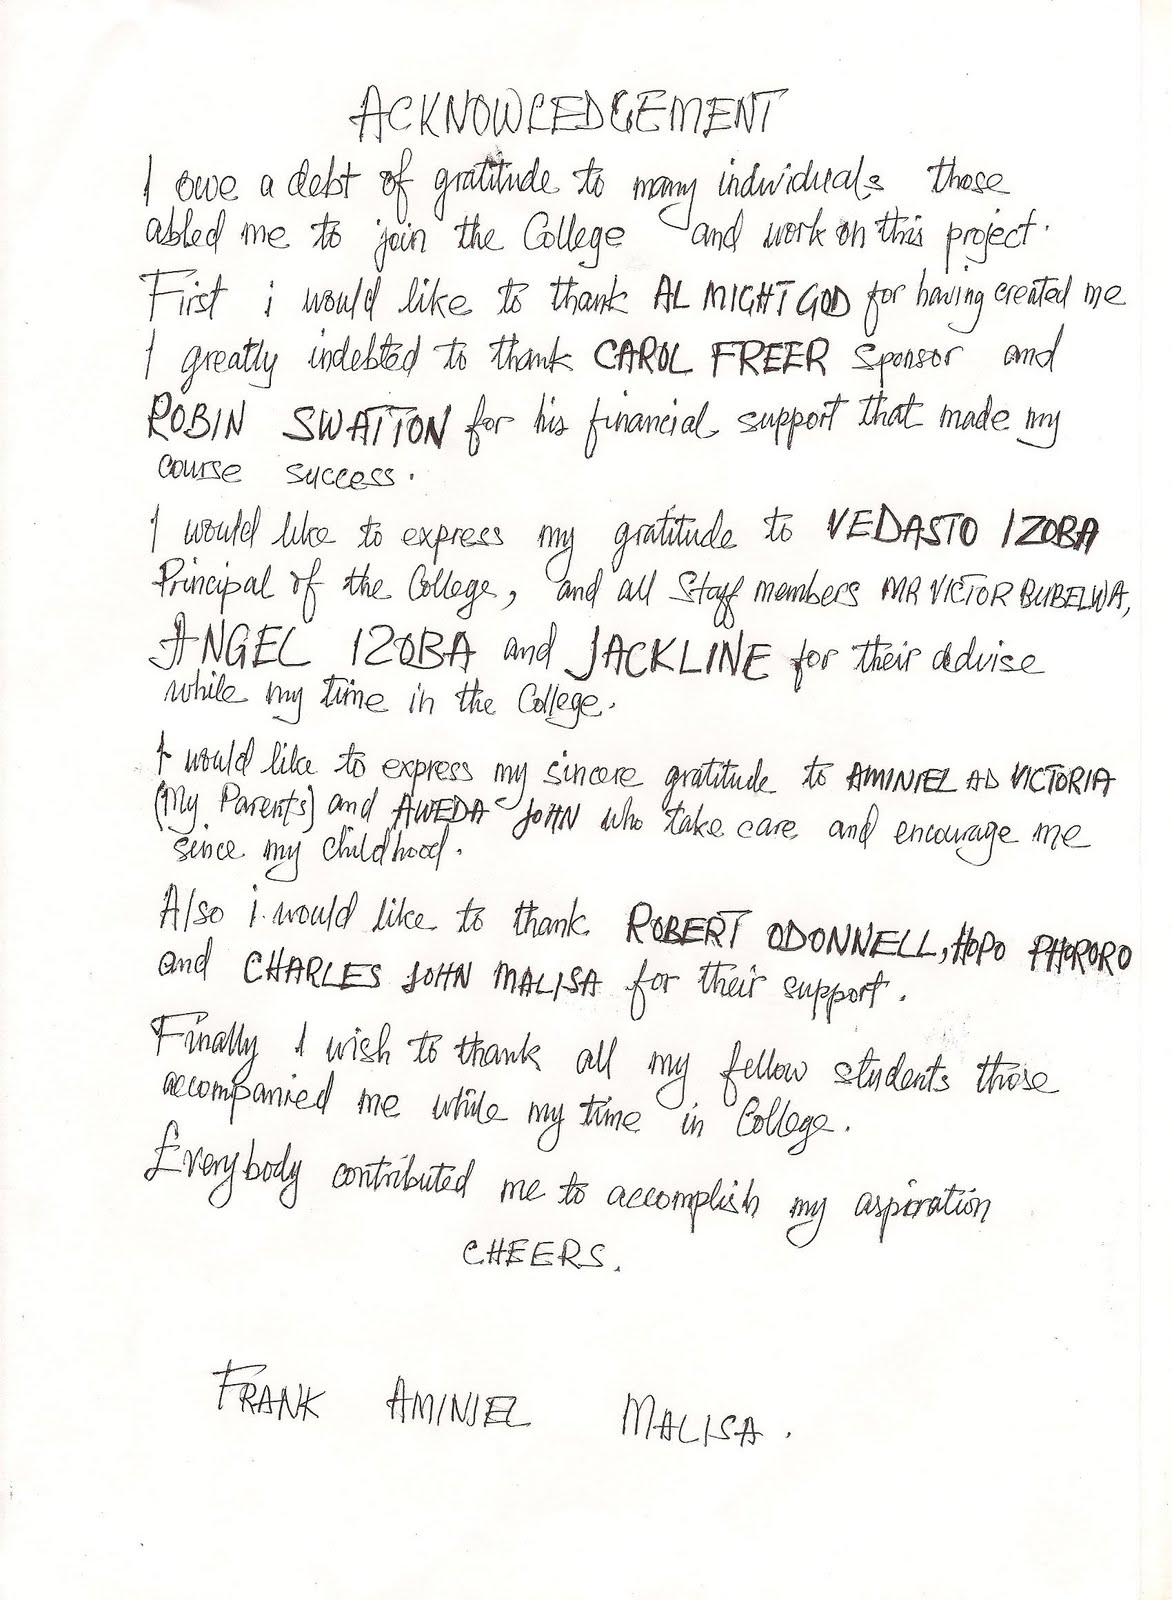 ACKNOWLEDGEMENT
I owe a debt of gratitude to many individuals those
abled me to join the College and work on this project.
First i would like to thank AL MIGHT GOD for having created me
I greatly indebted to thank CAROL FREER sponsor and
ROBIN SWATTON for his financial support that made my
course success.
I would like to express my gratitude to VEDASTO IZOBA
Principal of the College, and all Staff members MR VICTOR BUBELWA,
ANGEL IZOBA and JACKLINE for their advise
while my time in the College.
I would like to express my sincere gratitude to AMINIEL AD VICTORIA
(My Parents) and AWEDA JOHN who take care and encourage me
since my childhood.
Also i would like to thank ROBERT ODONNELL, HOPO PHORORO
and CHARLES JOHN MALISA for their support.
Finally I wish to thank all my fellow students those
accompanied me while my time in College.
Everybody contributed me to accomplish my aspiration
CHEERS.
FRANK AMINIEL MALISA.